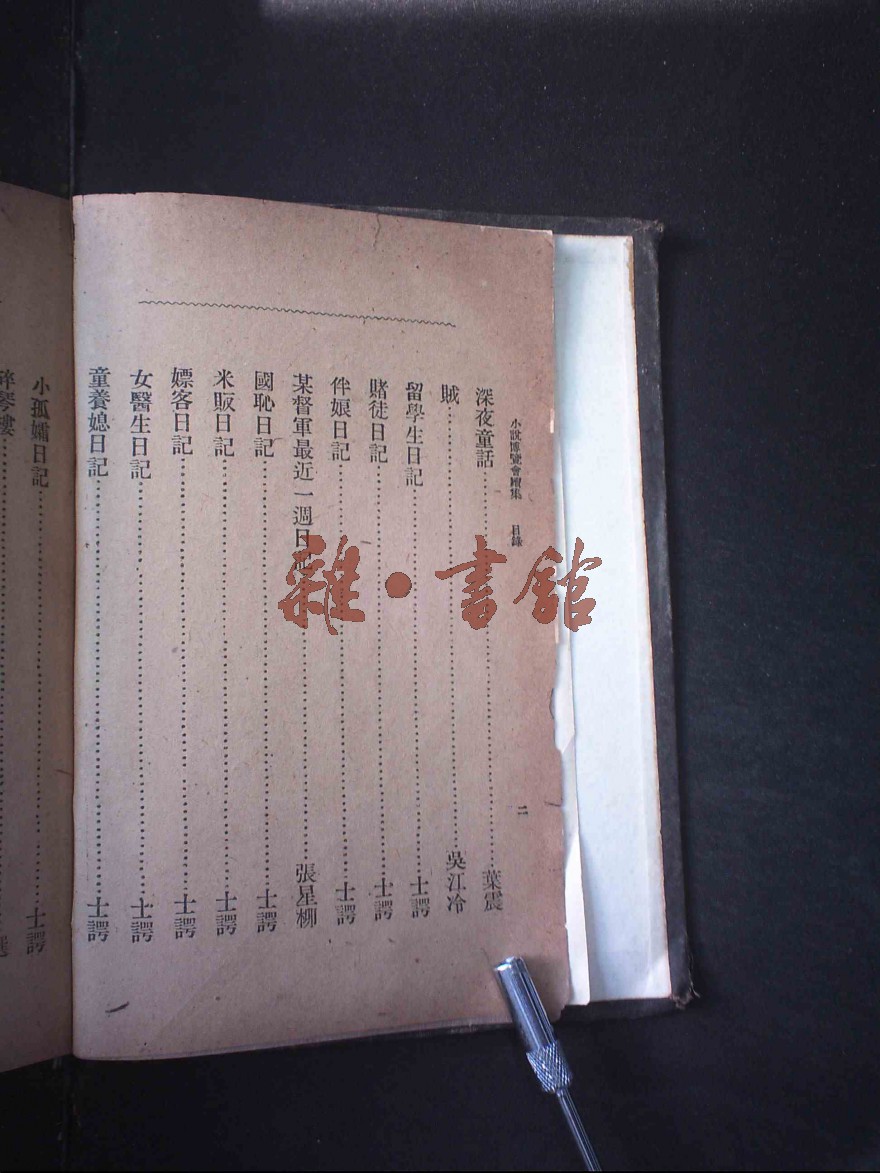 小說博覽會續集　目錄
二
深夜童話……葉震
賊……吳江冷
留學生日記……士諤
賭徒日記……士諤
伴娘日記……士諤
某督軍最近一週日記……張星柳
國恥日記……士諤
米販日記……士諤
嫖客日記……士諤
女醫生日記……士諤
童養媳日記……士諤
小孤孀日記……士諤
碎琴樓……
雜·書館